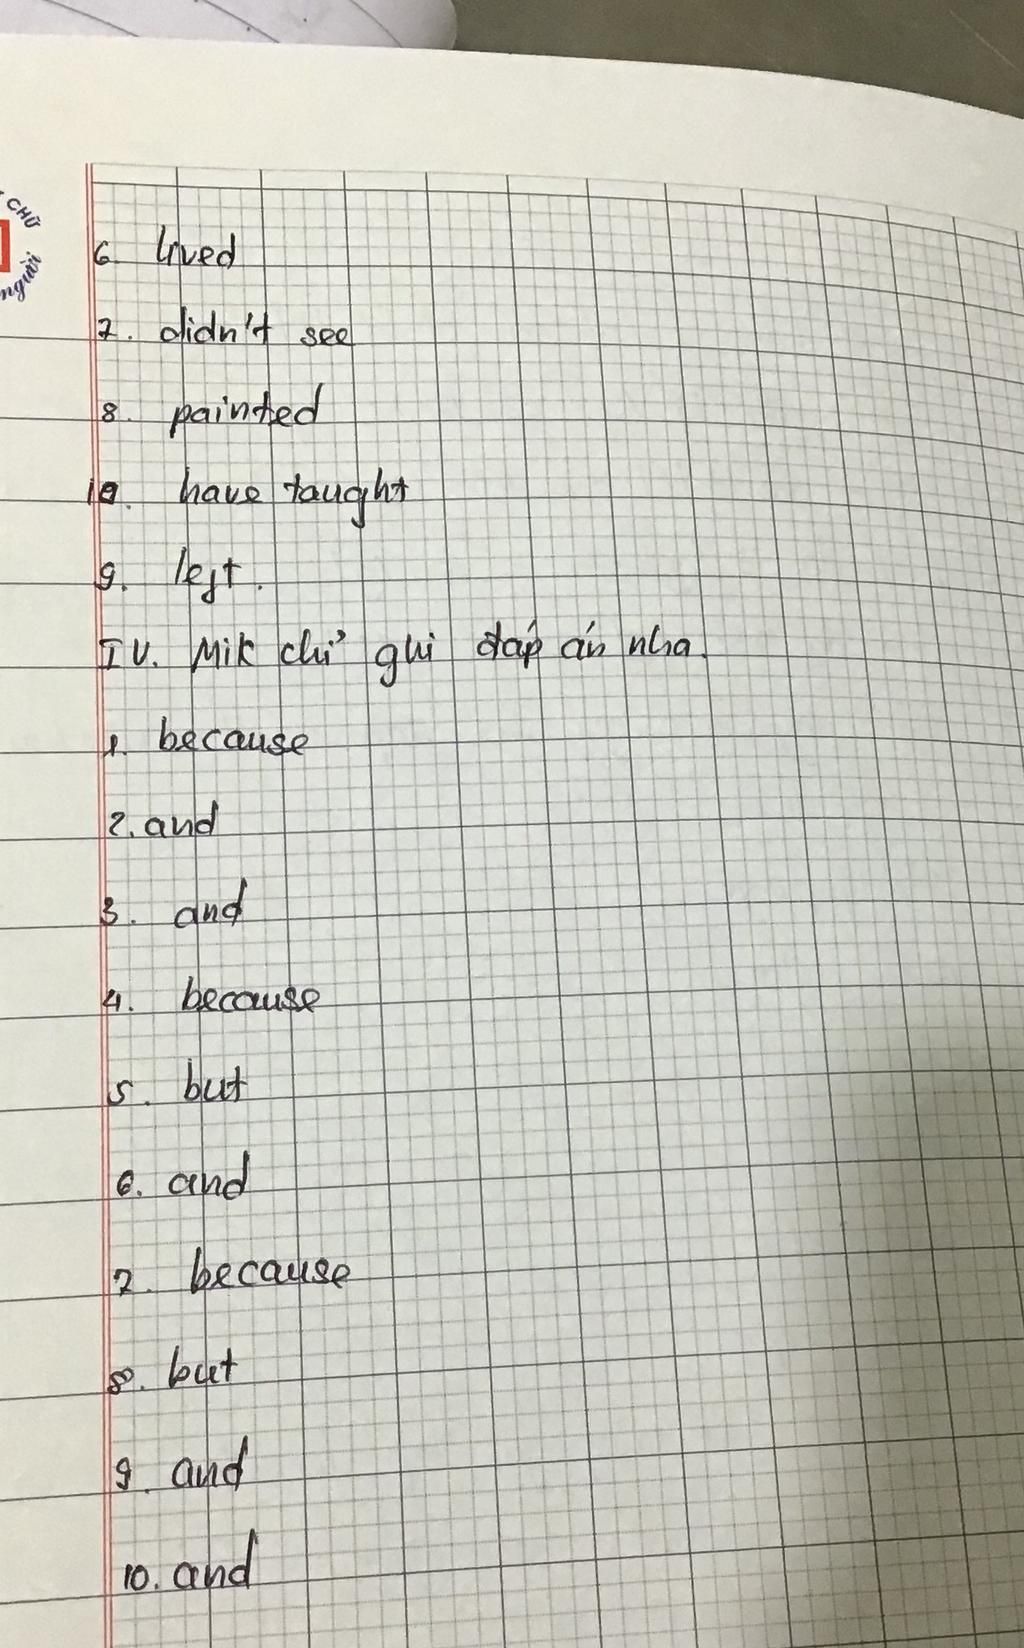 CHỮ
người
6. lived
7. didn't see
8. painted
10. have taught
9. left.
IV. Mik chỉ ghi đáp án nha.
1. because
2. and
3. and
4. because
5. but
6. and
7. because
8. but
9. and
10. and